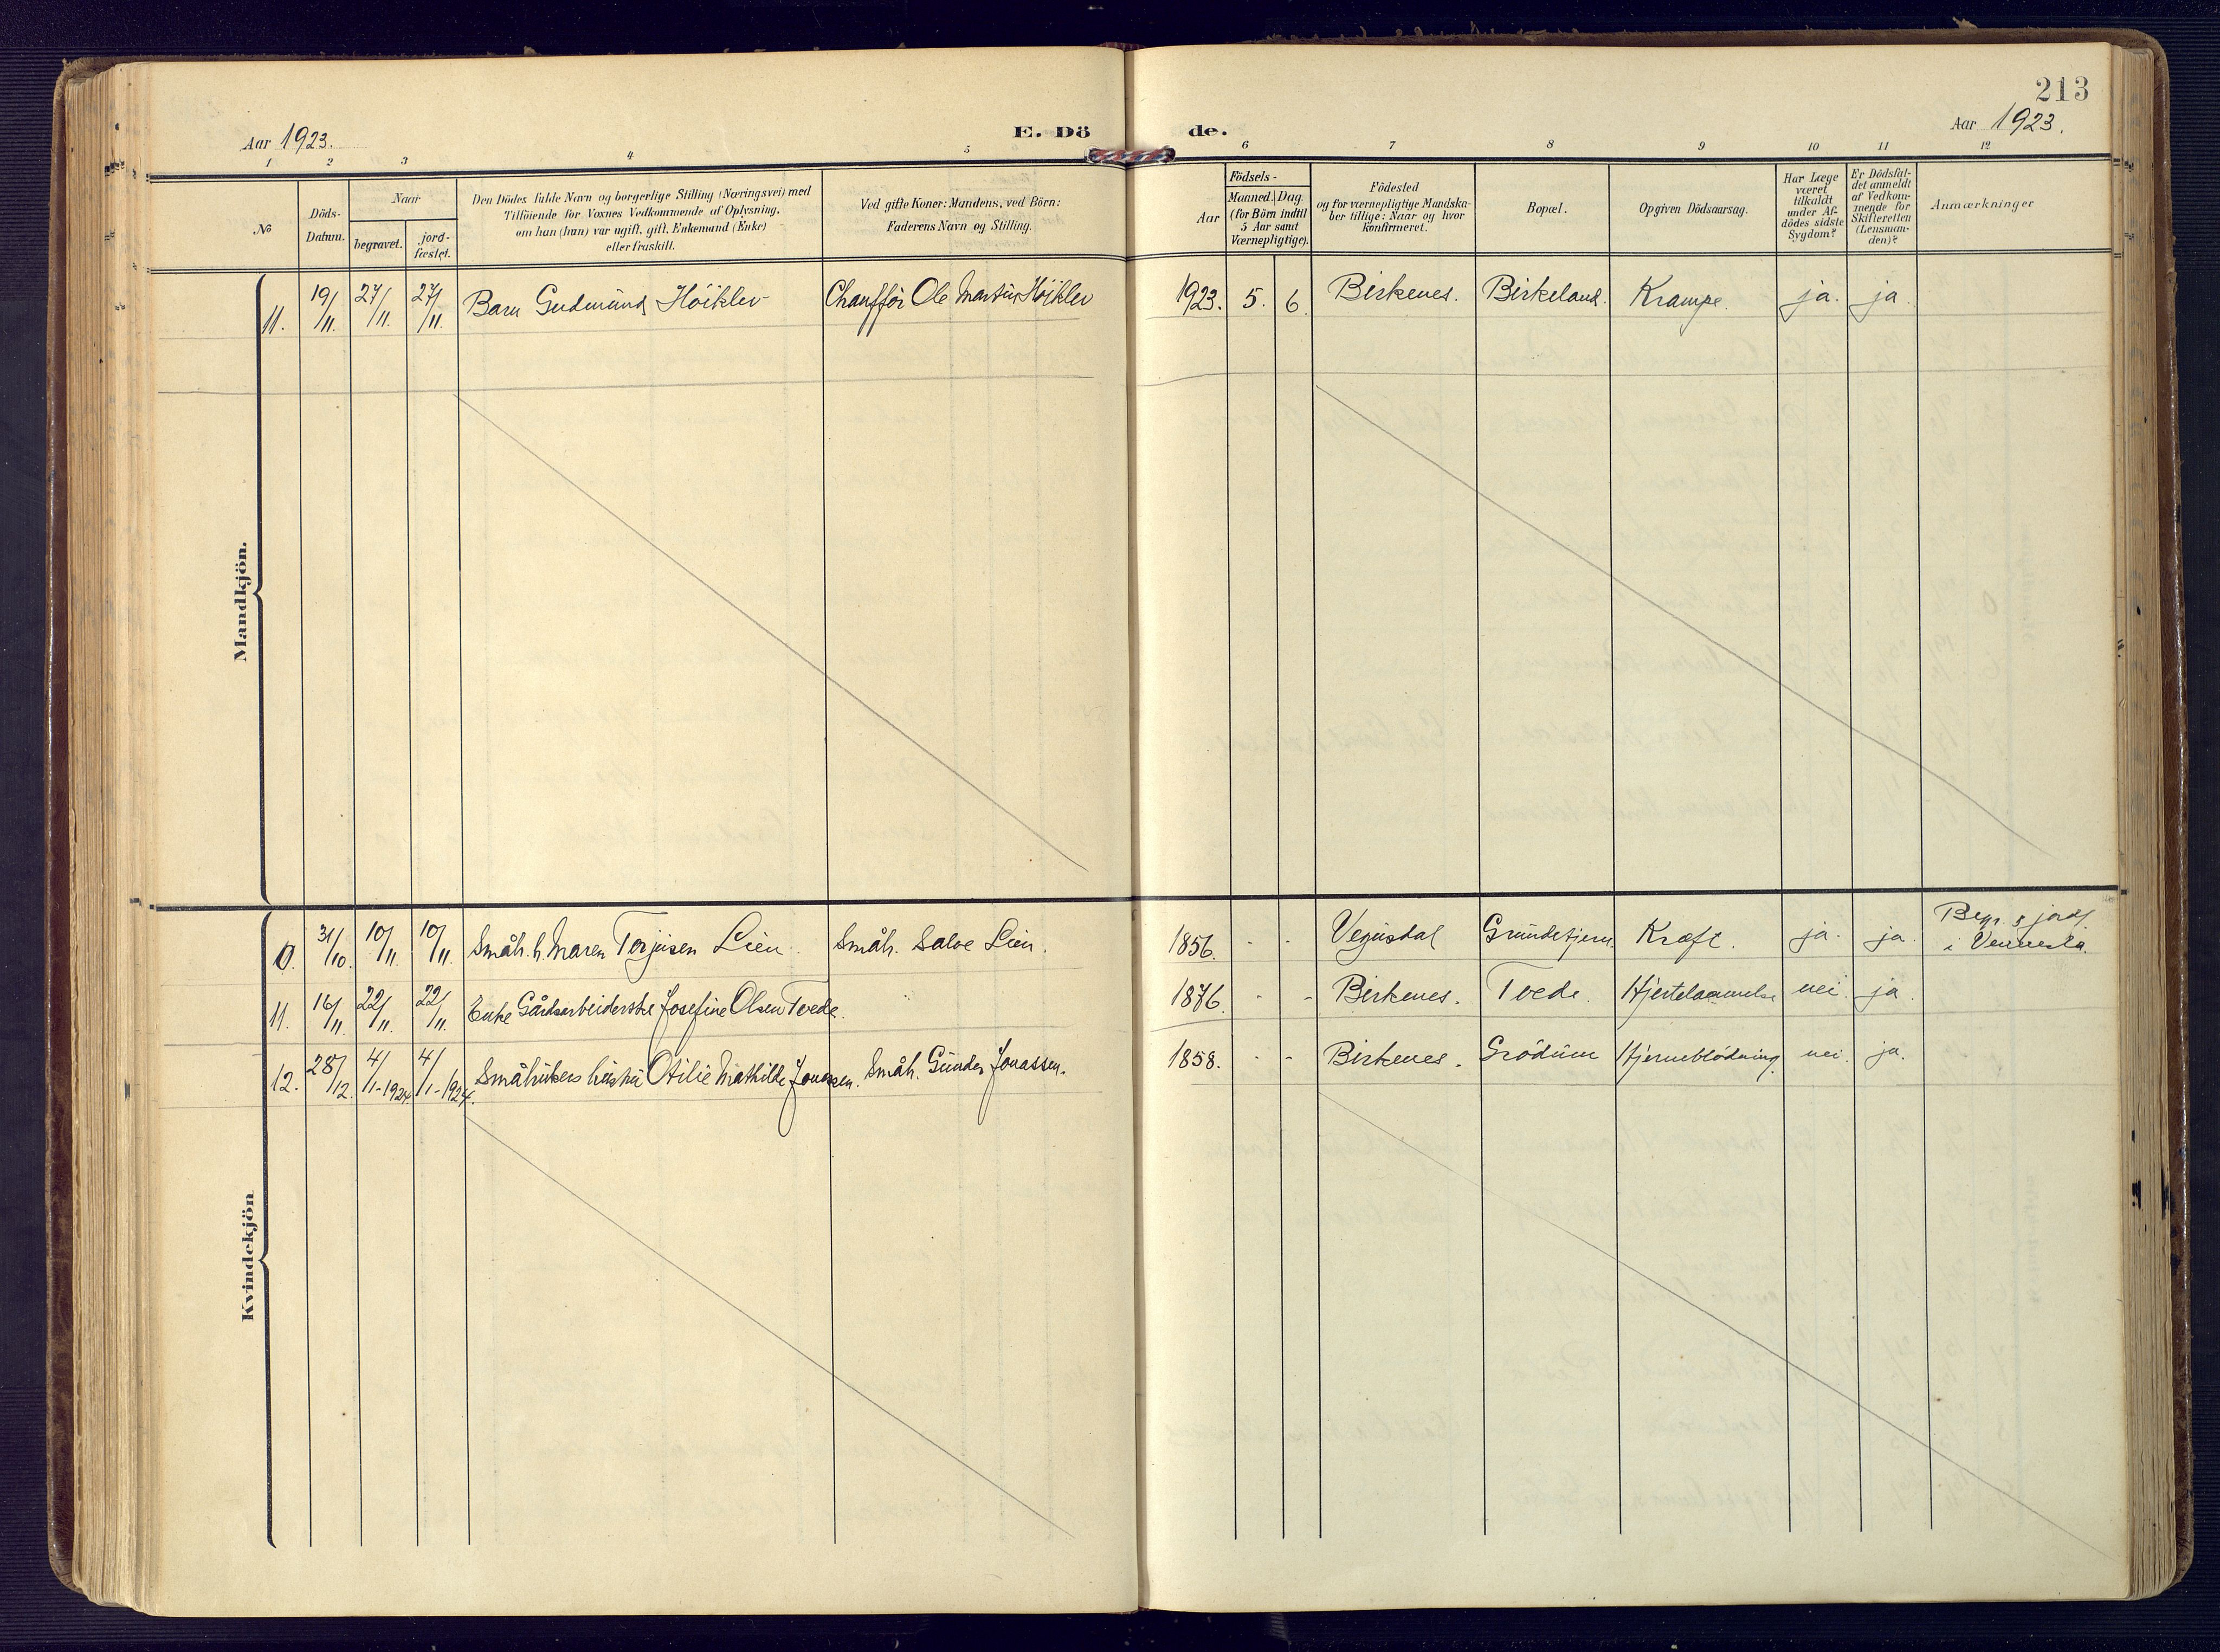 213
Aar 1923.
E. Dö de.
Aar 1923.
1 2 3 4 5 6 7 8 9 10 11 12
No
Döds-
Datum.
Naar
begravet.
jord-
fæstet.
Den Dödes fulde Navn og borgerlige Stilling (Næringsvei) med
Tilföiende for Voxnes Vedkommende af Oplysning,
om han (hun) var ugift, gift, Enkemand (Enke)
eller fraskilt.
Ved gifte Koner: Mandens, ved Börn:
Faderens Navn og Stilling.
Födsels-
Aar
Maaned. Dag.
(for Börn indtil
5 Aar samt
Værnepligtige).
Födested
og for værnepligtige Mandska-
ber tillige: Naar og hvor
konfirmeret.
Bopæl.
Opgiven Dödsaarsag.
Har Læge
været
tilkaldt
under Af-
dödes sidste
Sygdom?
Er Dödsfal-
det anmeldt
af Vedkom-
mende for
Skifteretten
(Lensman-
den)?
Anmærkninger
Mandkjön.
11. 19/11. 27/11. 27/11. Barn Gudmund Höiklev Chaufför Ole Martin Höiklev 1923. 5. 6. Birkenes. Birkeland. Krampe. ja. ja.
Kvindekjön
31/10. 10/11. 10/11. Småbr. h. Maren Terjusen Lien. Småbr. Salve Lien. 1856. - - Vegusdal Grundetjern Kræft. ja. ja. Begr. & jordf.
i Vennesla.
11. 16/11. 22/11. 22/11. Enke Gårdsarbeiderske Josefine Olsen Tvede. 1876. - - Birkenes. Tvede. Hjertelammelse nei. ja.
12. 28/12. 4/1-1924. 4/1-1924. Småbrukers hustru Otilie Mathilde Jonassen. Småbr. Gunder Jonassen. 1858. - - Birkenes. Grödum Hjerneblödning. nei. ja.